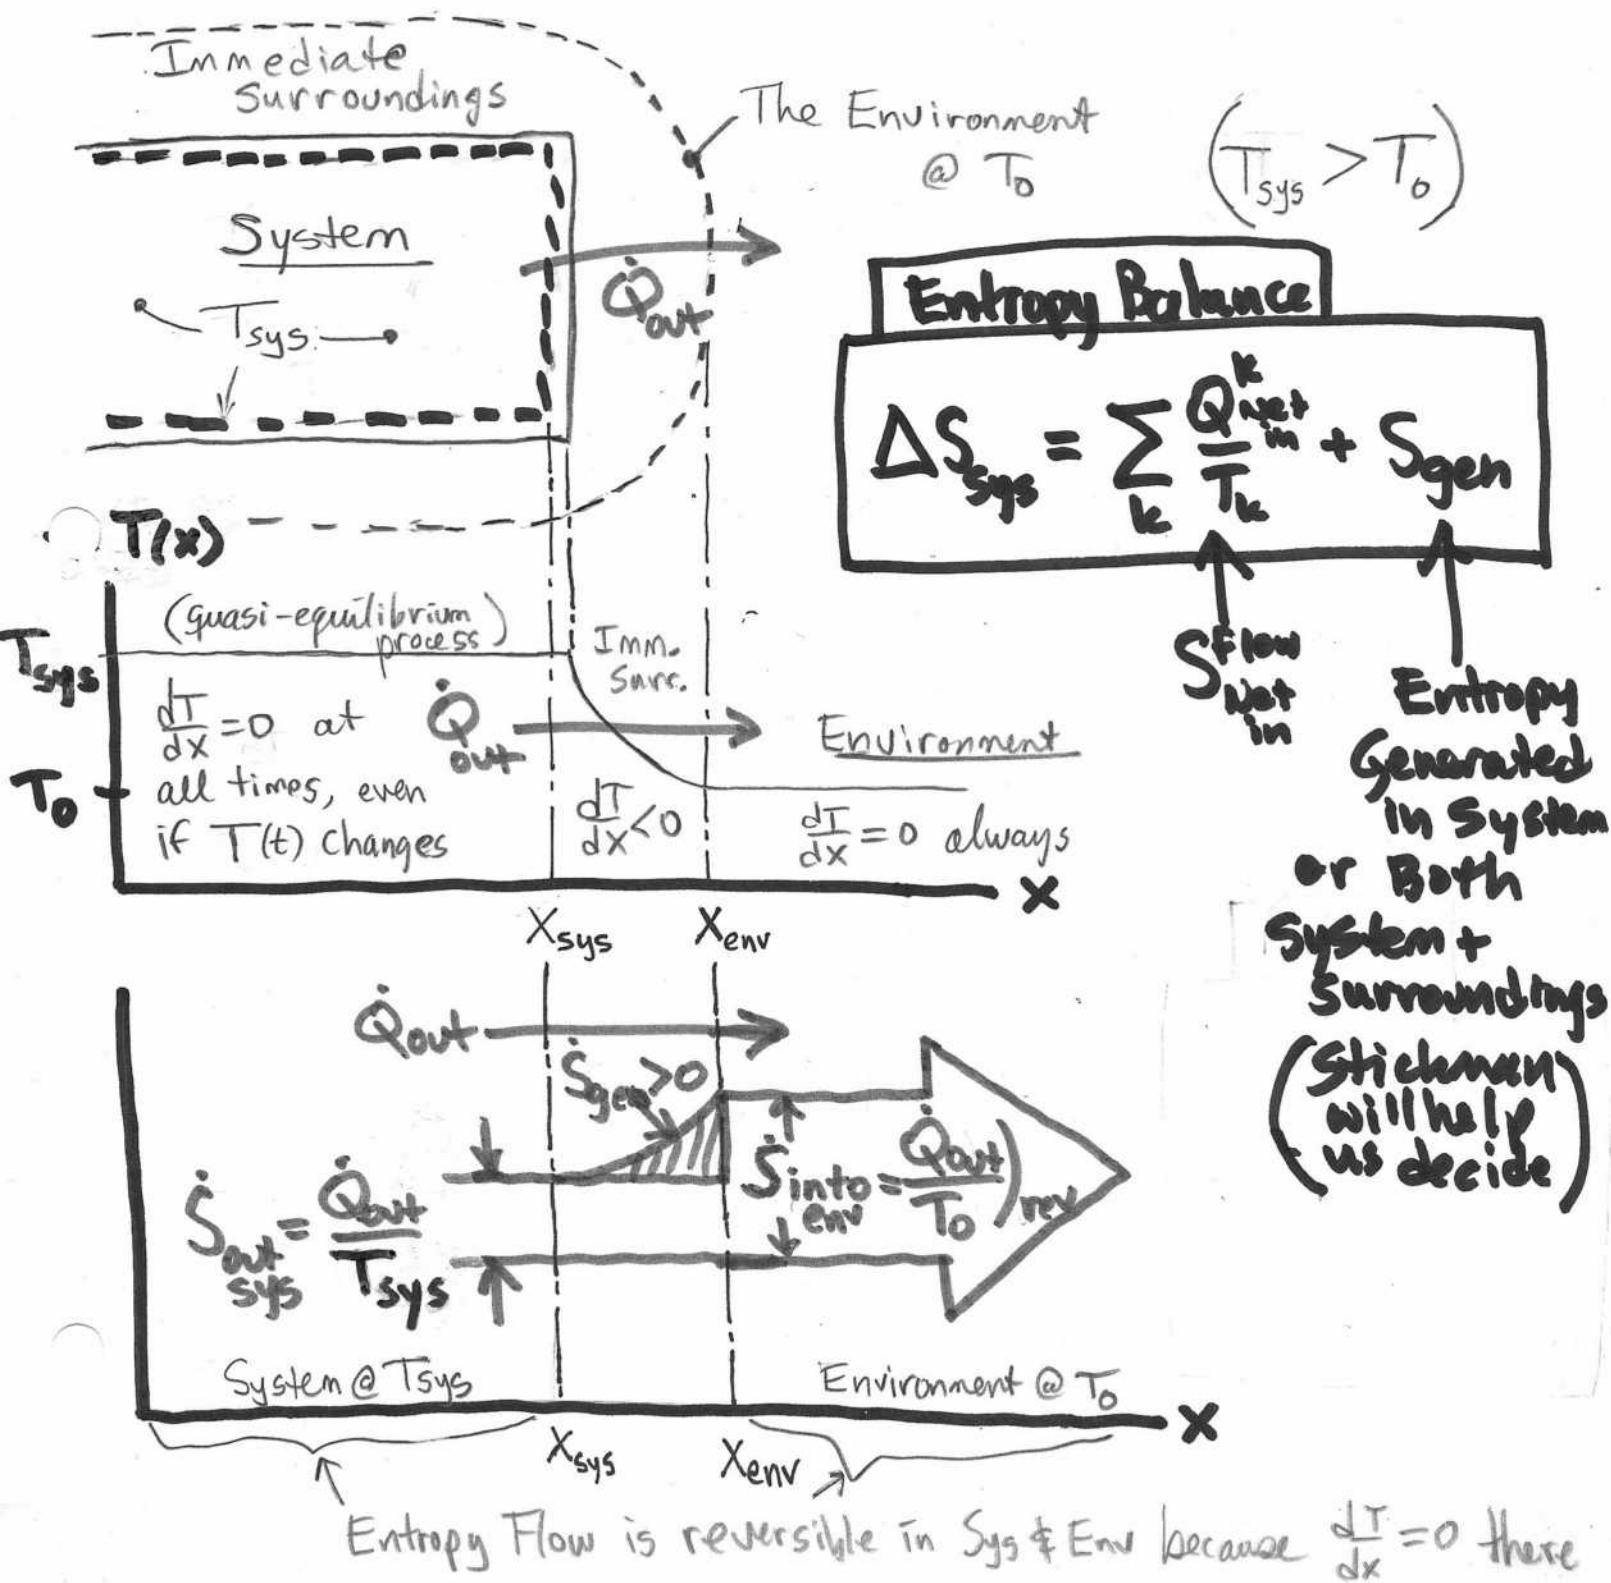 Immediate
Surroundings
The Environment
@ T₀
(T_sys > T₀)
System
T_sys
Q̇_out
Entropy Balance
ΔS_sys = Σ_k Q^k_Net in / T_k + S_gen
S^Flow_Net in
Entropy
Generated
in System
or Both
System +
Surroundings
(Stickman
will help
us decide)
T(x)
T_sys
T₀
(quasi-equilibrium
process)
dT/dx = 0 at
all times, even
if T(t) changes
Q̇_out
Imm.
Surr.
dT/dx < 0
Environment
dT/dx = 0 always
x
X_sys
X_env
Q̇_out
Ṡ_gen > 0
Ṡ_out sys = Q̇_out / T_sys
Ṡ_into env = Q̇_out / T₀)_rev
System @ Tsys
Environment @ T₀
x
X_sys
X_env
Entropy Flow is reversible in Sys & Env because dT/dx = 0 there